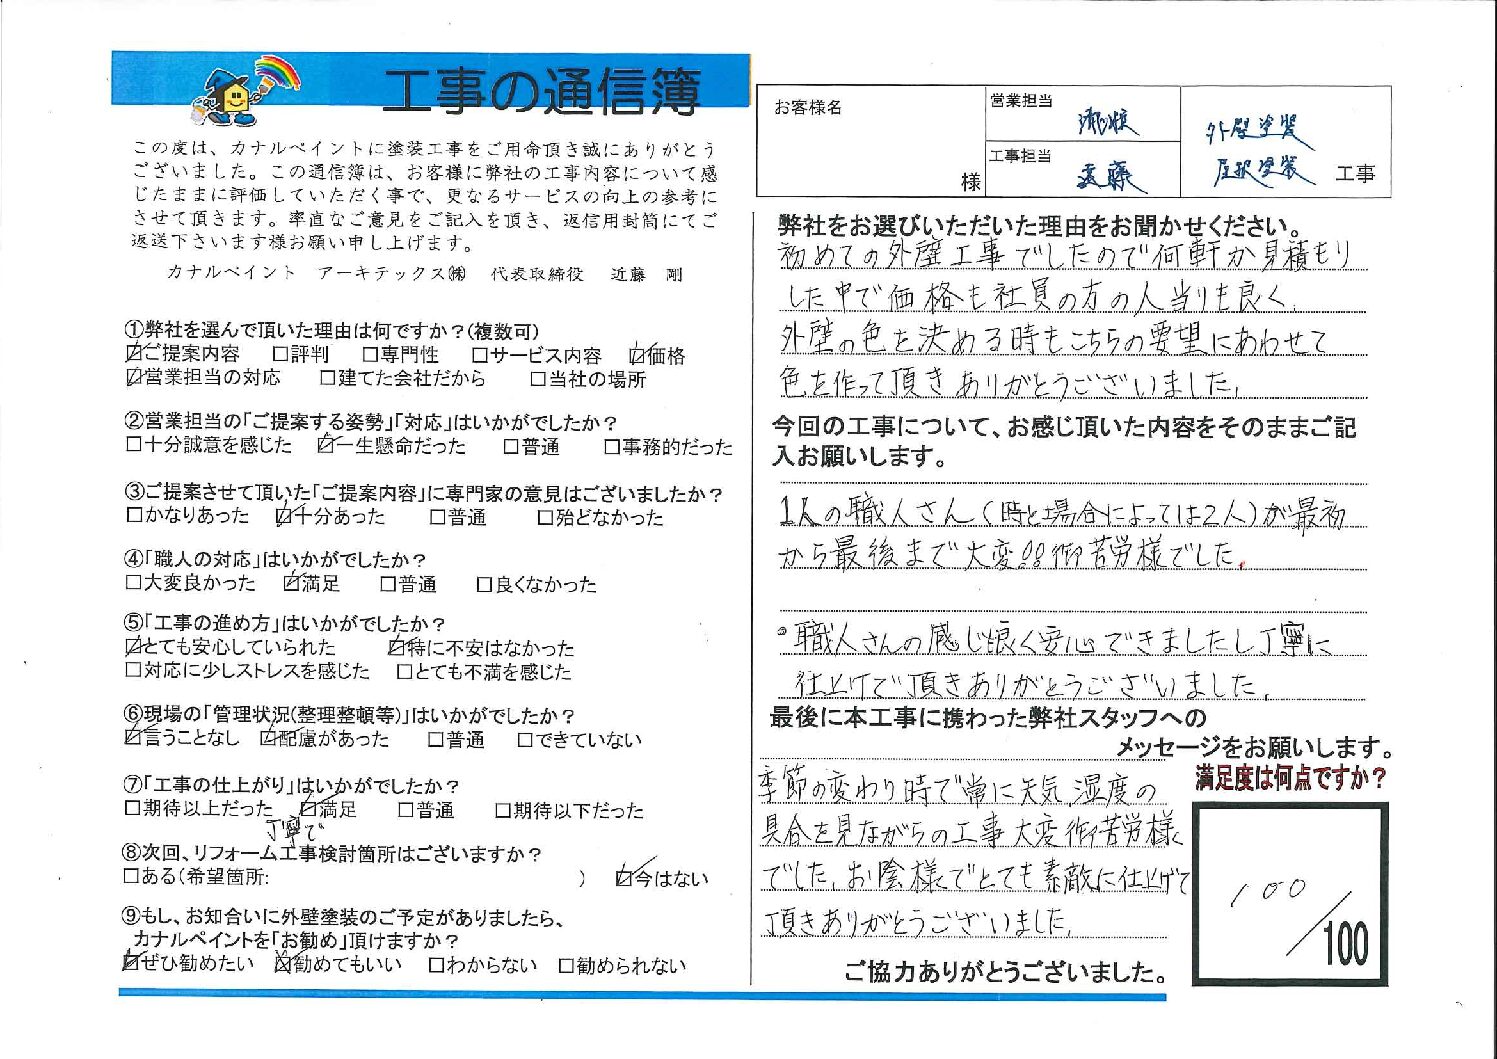 工事の通信簿
この度は、カナルペイントに塗装工事をご用命頂き誠にありがとう
ございました。この通信簿は、お客様に弊社の工事内容について感
じたままに評価していただく事で、更なるサービスの向上の参考に
させて頂きます。率直なご意見をご記入を頂き、返信用封筒にてご
返送下さいます様お願い申し上げます。
カナルペイント アーキテックス㈱ 代表取締役 近藤 剛
①弊社を選んで頂いた理由は何ですか？(複数可)
☑ご提案内容 □評判 □専門性 □サービス内容 ☑価格
☑営業担当の対応 □建てた会社だから □当社の場所
②営業担当の｢ご提案する姿勢｣｢対応｣はいかがでしたか？
□十分誠意を感じた ☑一生懸命だった □普通 □事務的だった
③ご提案させて頂いた｢ご提案内容｣に専門家の意見はございましたか？
□かなりあった ☑十分あった □普通 □殆どなかった
④｢職人の対応｣はいかがでしたか？
□大変良かった ☑満足 □普通 □良くなかった
⑤｢工事の進め方｣はいかがでしたか？
☑とても安心していられた ☑特に不安はなかった
□対応に少しストレスを感じた □とても不満を感じた
⑥現場の｢管理状況(整理整頓等)｣はいかがでしたか？
☑言うことなし ☑配慮があった □普通 □できていない
⑦｢工事の仕上がり｣はいかがでしたか？
□期待以上だった ☑満足 □普通 □期待以下だった
丁寧で
⑧次回、リフォーム工事検討箇所はございますか？
□ある(希望箇所: ) ☑今はない
⑨もし、お知合いに外壁塗装のご予定がありましたら、
カナルペイントを｢お勧め｣頂けますか？
☑ぜひ勧めたい ☑勧めてもいい □わからない □勧められない
お客様名
様
営業担当
工事担当
外壁塗装
屋根塗装 工事
弊社をお選びいただいた理由をお聞かせください。
初めての外壁工事でしたので何軒か見積もり
した中で価格も社員の方の人当りも良く、
外壁の色を決める時もこちらの要望にあわせて
色を作って頂きありがとうございました。
今回の工事について、お感じ頂いた内容をそのままご記
入お願いします。
1人の職人さん(時と場合によっては2人)が最初
から最後まで大変!!御苦労様でした。
・職人さんの感じ良く安心できましたし丁寧に
仕上げて頂きありがとうございました。
最後に本工事に携わった弊社スタッフへの
メッセージをお願いします。
季節の変わり時で常に天気、湿度の
具合を見ながらの工事大変御苦労様
でした。お陰様でとても素敵に仕上げて
頂きありがとうございました。
ご協力ありがとうございました。
満足度は何点ですか？
100／100